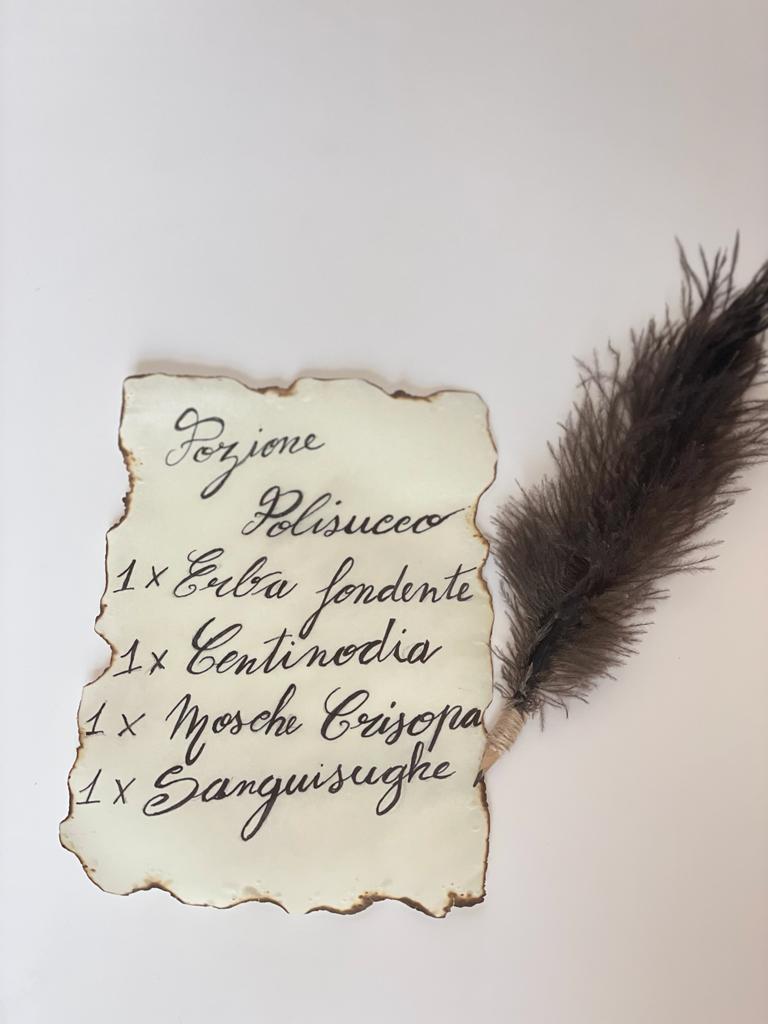 Pozione
Polisucco
1 x Erba fondente
1 x Centinodia
1 x Mosche Crisopa
1 x Sanguisughe